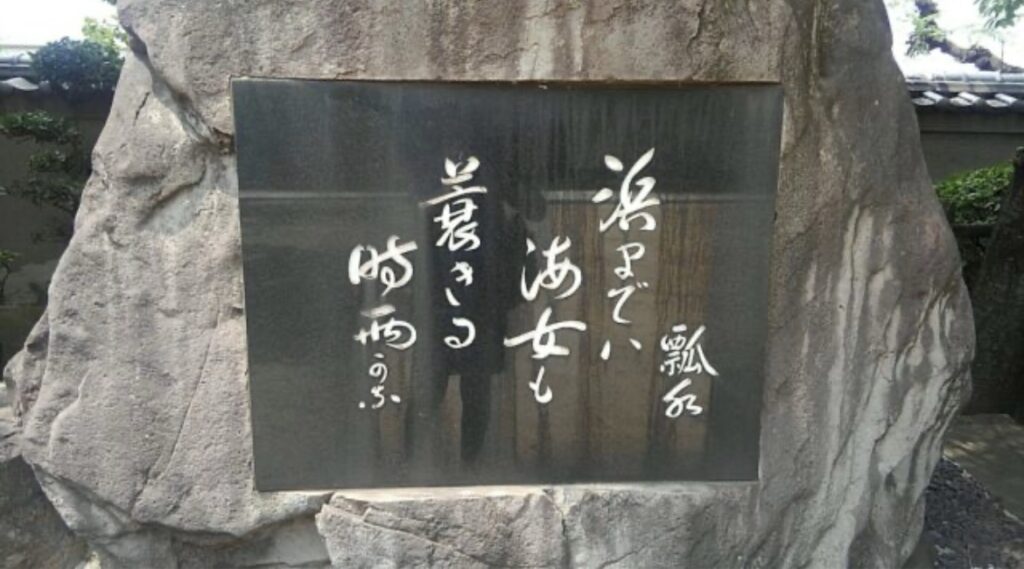 瓢水
浜までハ
海女も
蓑きる
時雨かな